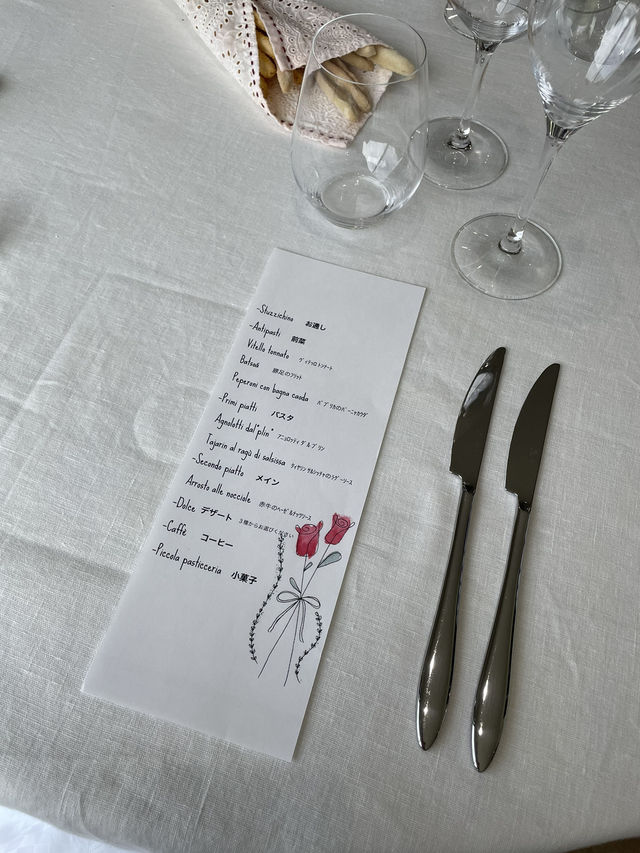 -Stuzzichino お通し
-Antipasti 前菜
Vitello tonnato ヴィテッロトンナート
Batsoà 豚足のフリット
Peperoni con bagna cauda パプリカのバーニャカウダ
-Primi piatti パスタ
Agnolotti dal"plin" アニョロッティ ダル プリン
Tajarin al ragù di salsiccia タイヤリン サルシッチャのラグーソース
-Secondo piatto メイン
Arrosto alle nocciole 赤牛のヘーゼルナッツソース
-Dolce デザート 3種からお選びください
-Caffè コーヒー
-Piccola pasticceria 小菓子